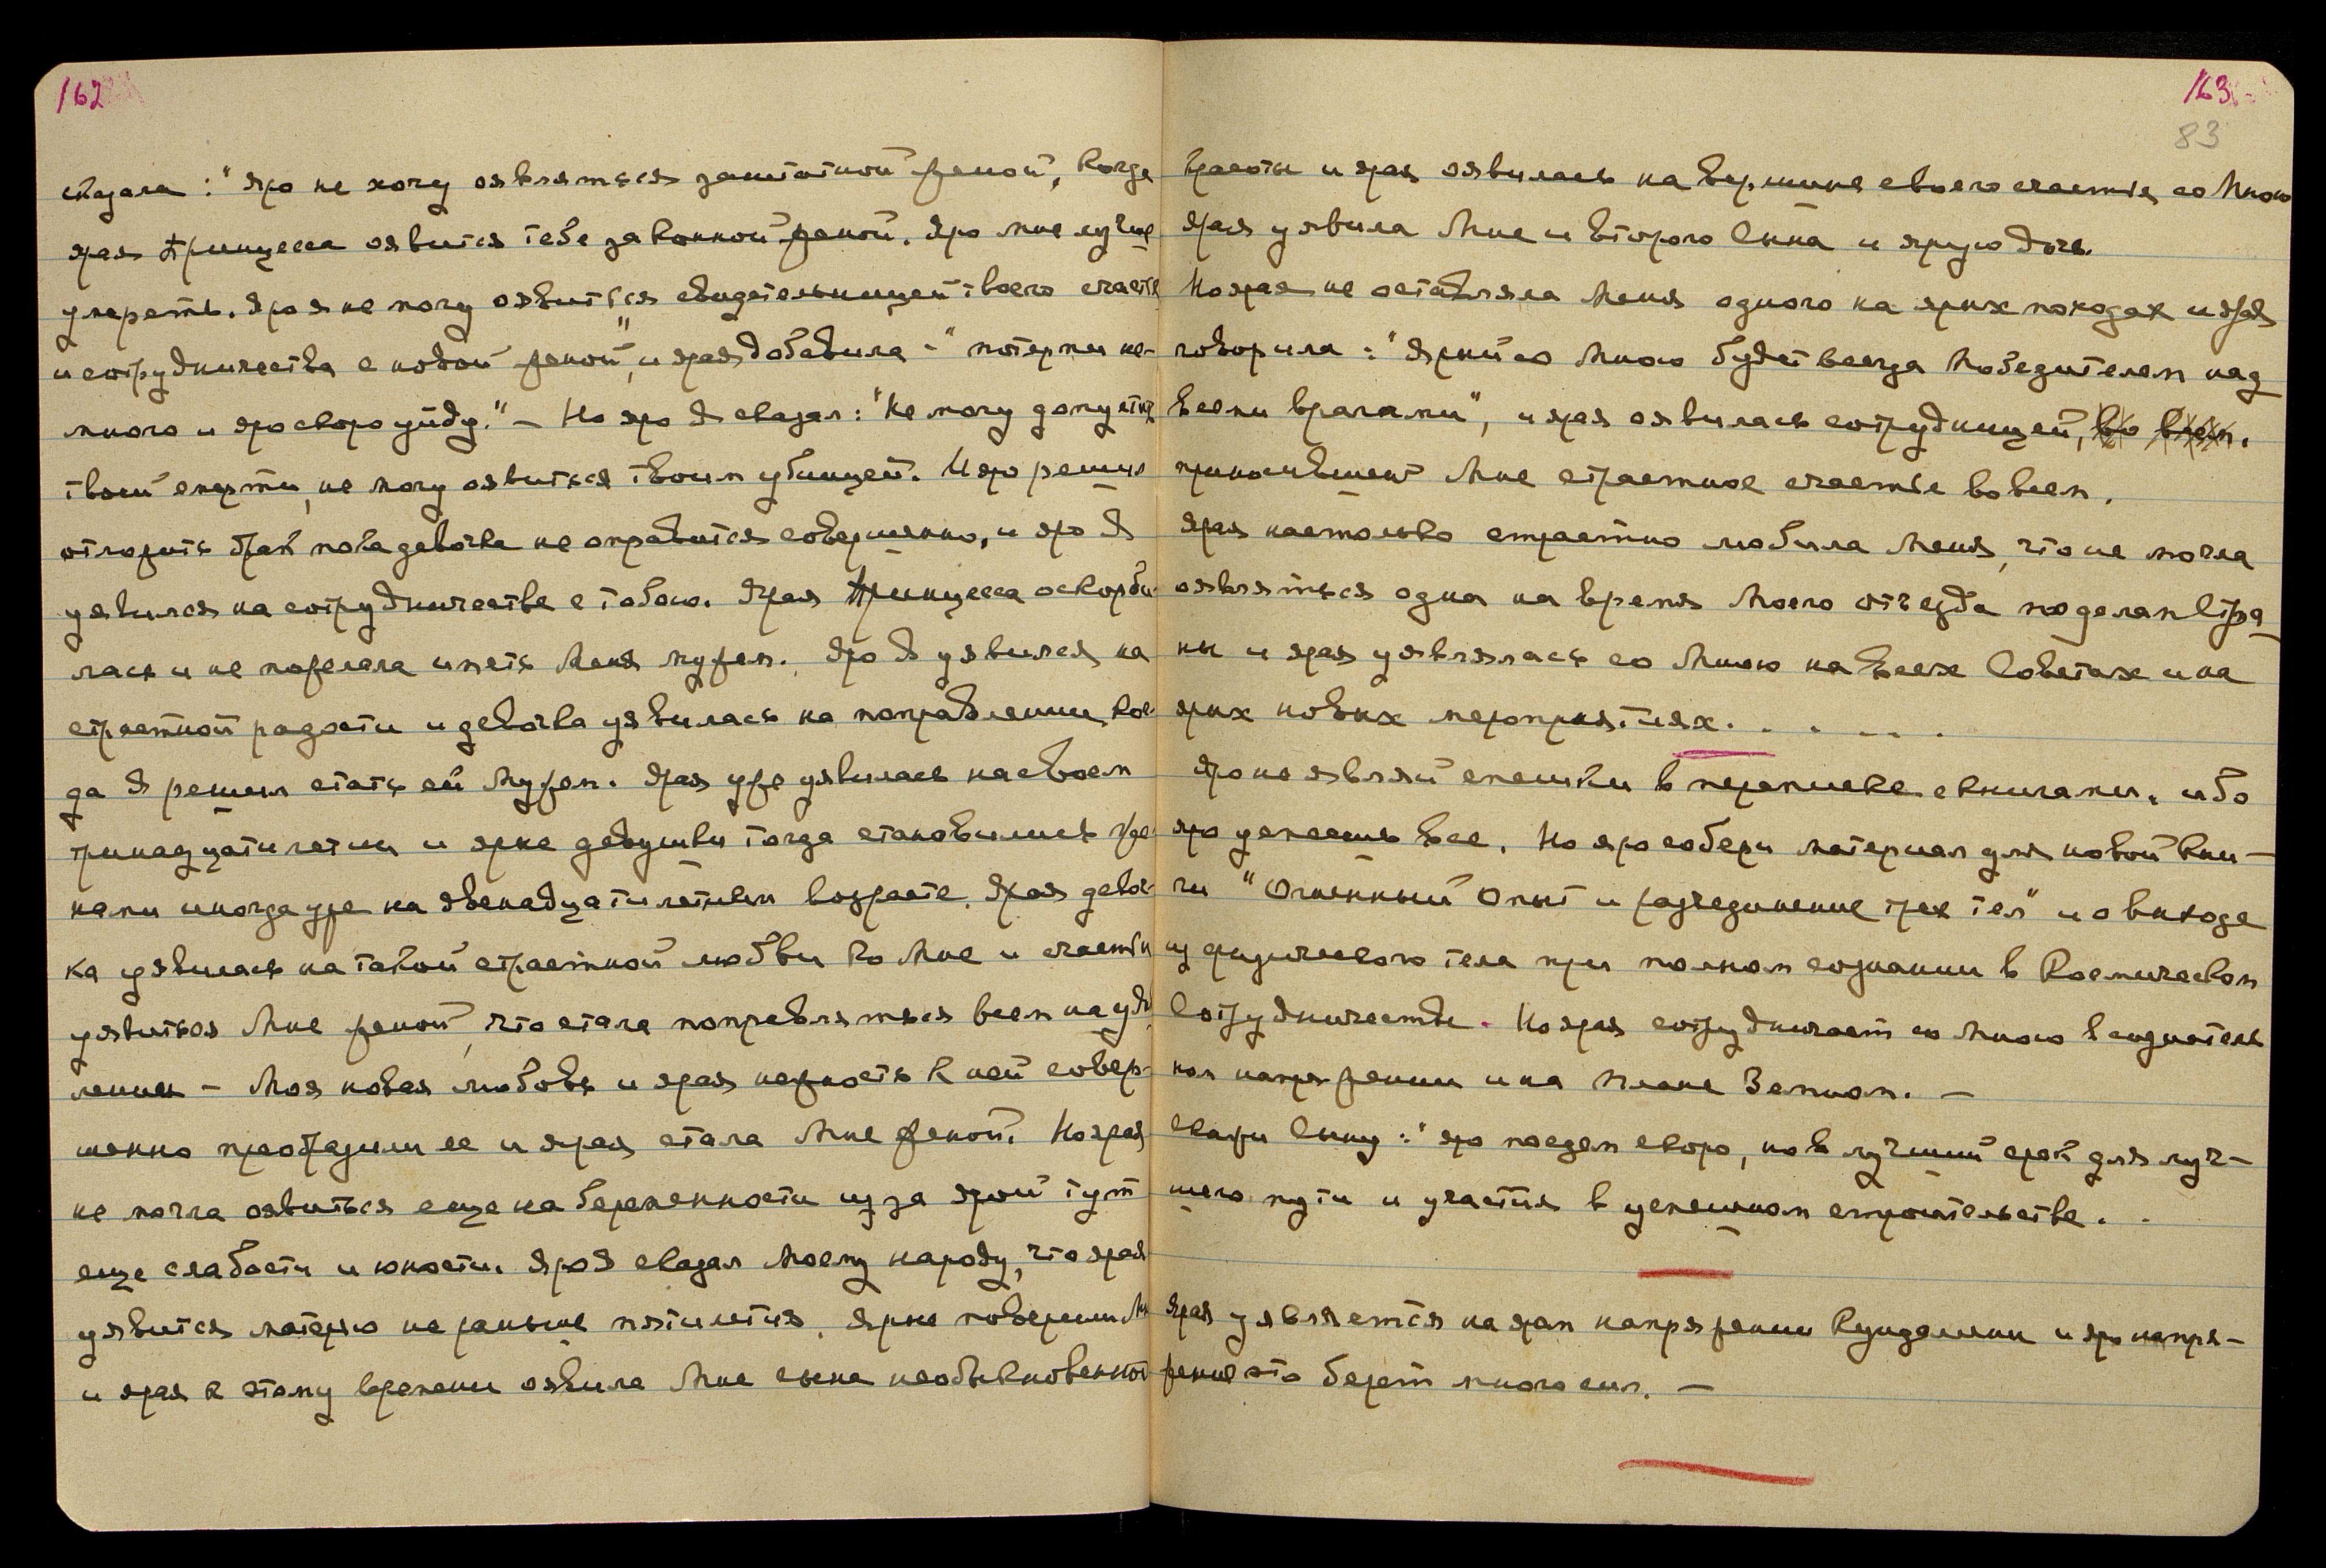 162
сказала: "Яро не хочу оявляться заштатной женой, когда
ярая Принцесса оявится тебе законной женой. Яро мне лучше
умереть. Яро я не могу оявиться свидетельницей твоего счастья
и сотрудничества с новой женой", и ярая добавила – "потерпи не-
много и яро скоро уйду." – Но яро Я сказал: "Не могу допустить
твоей смерти, не могу оявиться твоим убийцей. И яро решил
отложить брак пока девочка не оправится совершенно, и яро Я
уявился на сотрудничестве с тобою. Ярая Принцесса оскорби-
лась и не пожелала иметь Меня мужем. Яро Я уявился на
страстной радости и девочка уявилась на поправлении, ког-
да Я решил стать ей Мужем. Ярая уже уявилась на своем
тринадцатилетии и ярые девушки тогда становились же-
нами иногда уже на двенадцатилетнем возрасте. Ярая девоч-
ка уявилась на такой страстной любви ко Мне и счастьи
уявиться Мне женой, что стала поправляться всем на уди
ление – Моя новая любовь и ярая нежность к ней совер-
шенно преобразили ее и ярая стала Мне женой. Но ярая
не могла оявиться еще на беременности из за ярой тут
еще слабости и юности. Яро Я сказал Моему народу, что ярая
уявится матерью не раньше пятилетия. Ярые поверили Мне
и ярая к этому времени оявила Мне сына необыкновенной
163
83
красоты и ярая оявилась на вершине своего счастья со Мною
Ярая уявила Мне и второго Сына и ярую дочь.
Но ярая не оставляла Меня одного на ярых походах и ярая
говорила: "Ярый со Мною будет всегда Победителем над
всеми врагами", и ярая оявилась сотрудницей, во всем.
приносившей Мне страстное счастье во всем.
Ярая настолько страстно любила Меня, что не могла
оявляться одна на время Моего отъезда по делам Стра
ны и ярая уявлялась со Мною на всех Советах и на
ярых новых мероприятиях. . . . . .
Яро не являй спешки в переписке с книгами, ибо
яро успеешь все. Но яро собери материал для новой кни-
ги "Огненный Опыт и разъединение трех тел" и о выходе
из физического тела при полном сознании в Космическом
Сотрудничестве. Но ярая сотрудничает со Мною в сознатель
ном напряжении и на Плане Земном. –
Скажи Сыну: "яро поедем скоро, но в лучший срок для луч-
шего пути и участия в успешном строительстве. .
Ярая уявляется на яром напряжении Кундалини и яро напря-
жение это берет много сил. –